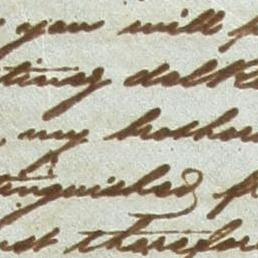 you will f
ting dalk
, my brother
tinguished f
ust therefor